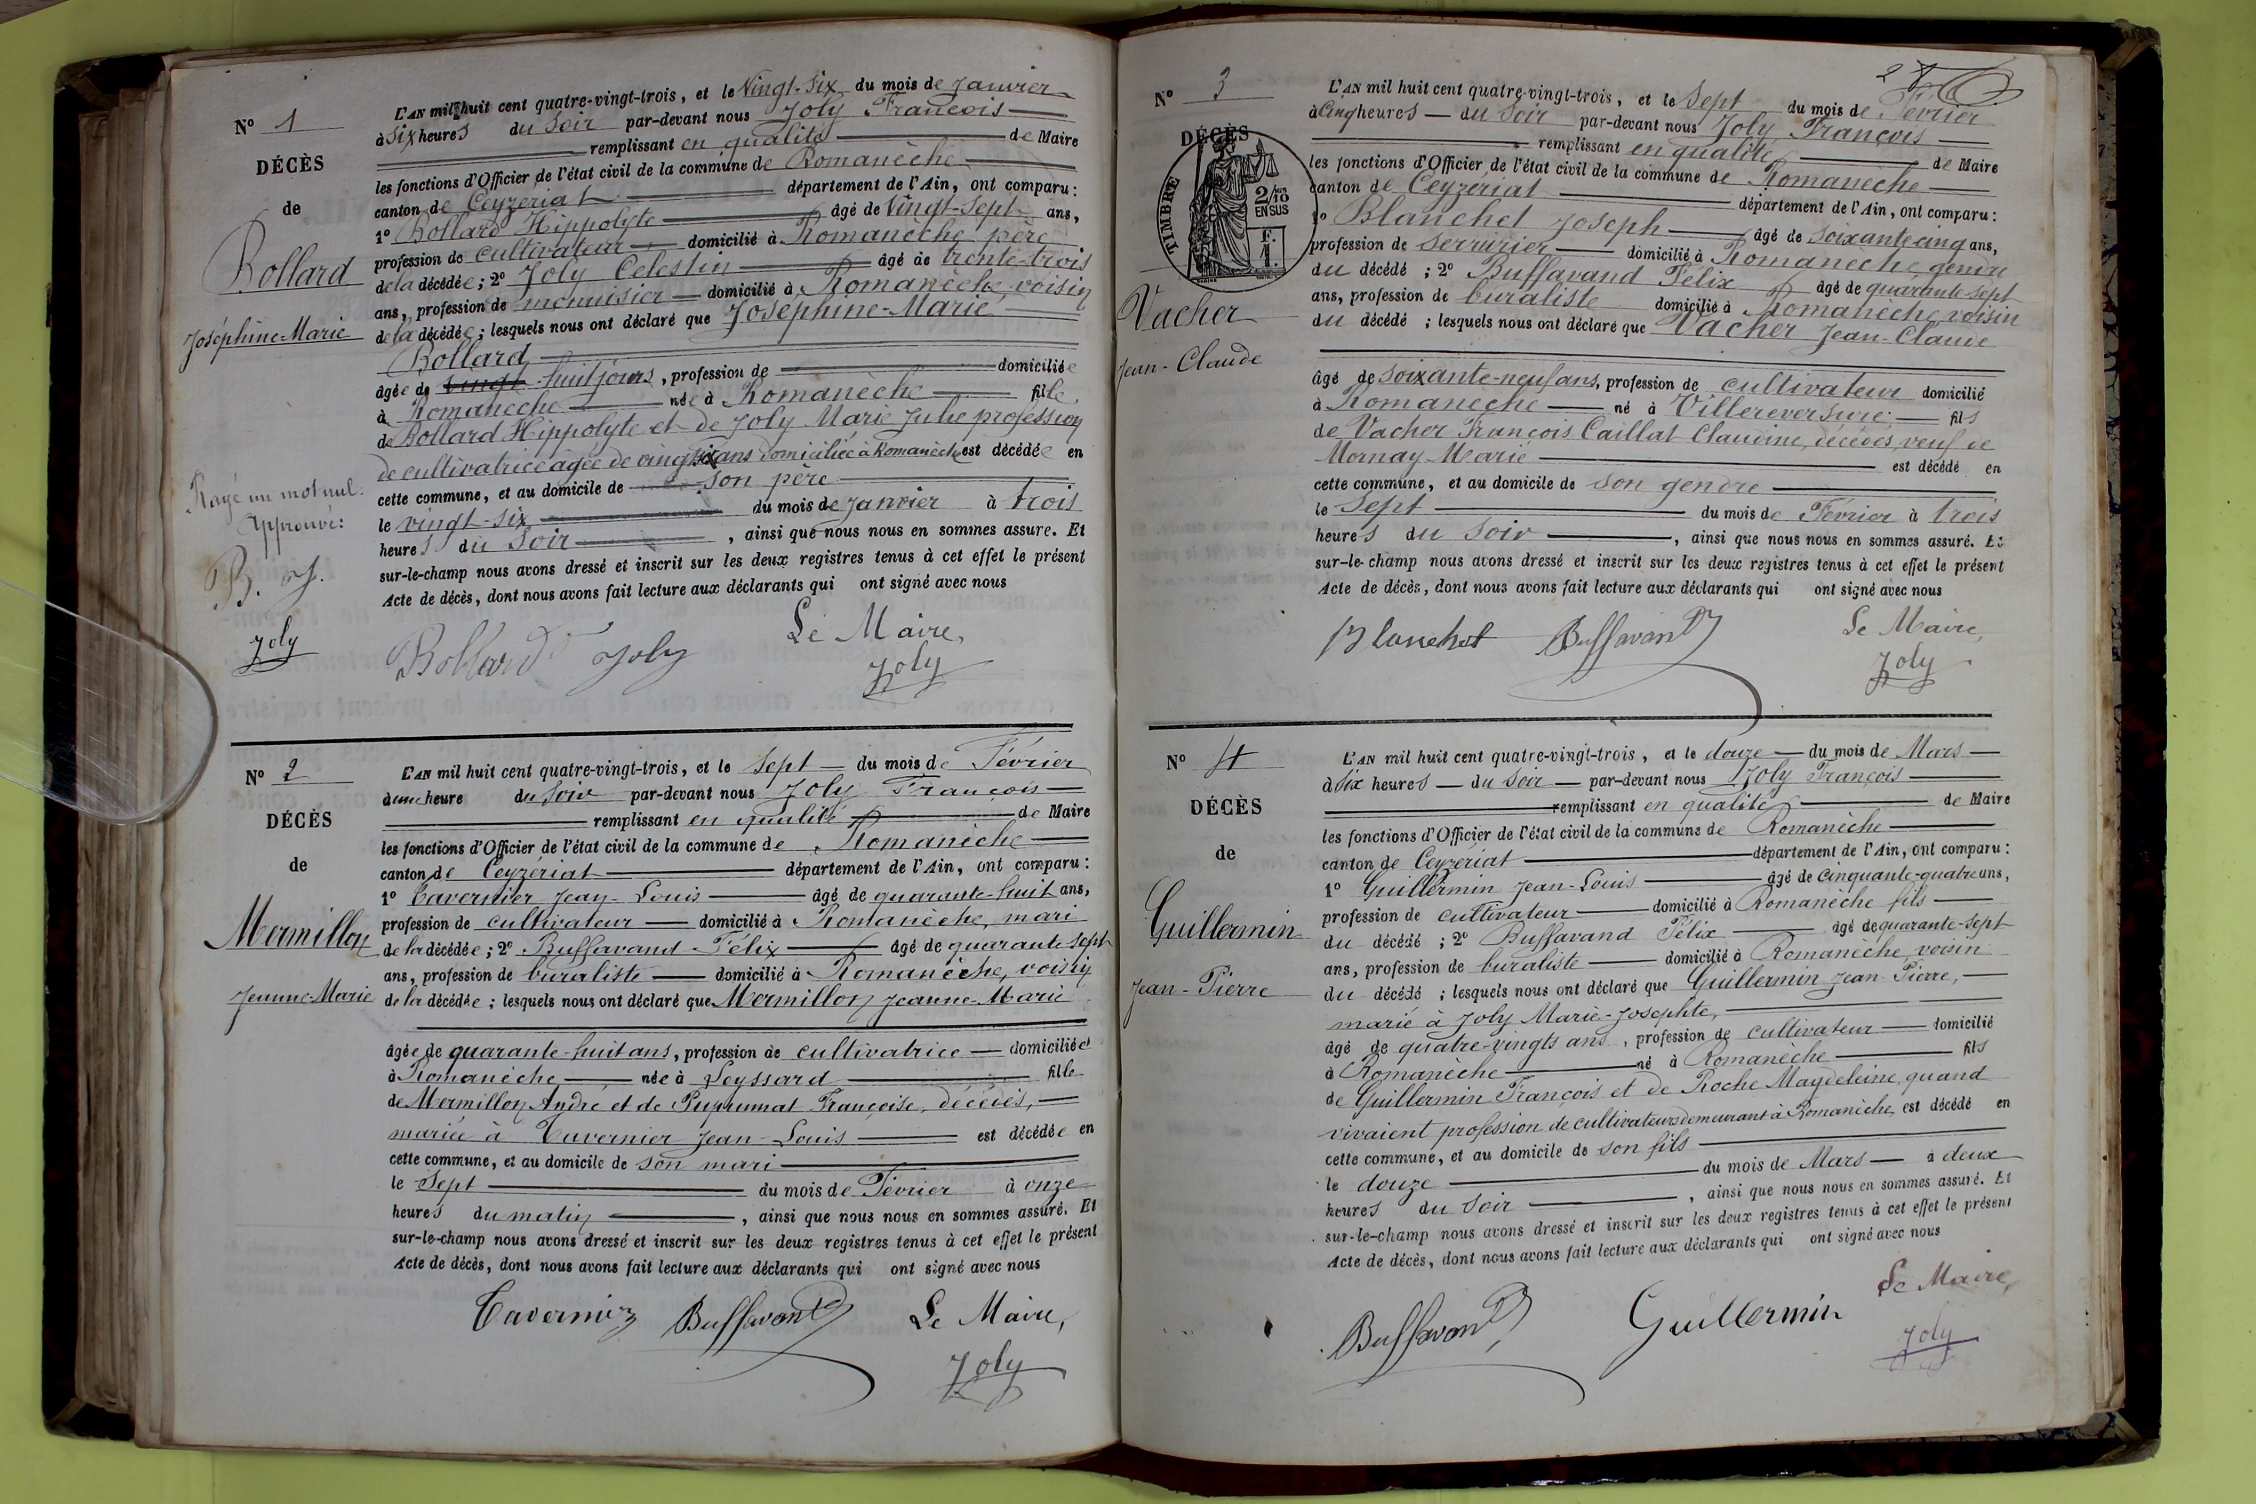 N° 1
DÉCÈS
de
Bollard
Joséphine-Marie
Rayé un mot nul.
Approuvé:
B. J.
Joly
L'AN mil huit cent quatre-vingt-trois, et le Vingt-Six du mois de Janvier
à Six heures du Soir par-devant nous Joly François
remplissant en qualité de Maire
les fonctions d'Officier de l'état civil de la commune de Romanèche
canton de Ceyzeriat département de l'Ain, ont comparu:
1° Bollard Hippolyte âgé de Vingt-Sept ans,
profession de cultivateur domicilié à Romanèche père
de la décédée; 2° Joly Celestin âgé de trente-trois
ans, profession de menuisier domicilié à Romanèche voisin
de la décédée; lesquels nous ont déclaré que Joséphine-Marie
Bollard
âgée de vingt huit jours, profession de domiciliée
à Romanèche née à Romanèche fille
de Bollard Hippolyte et de Joly Marie Julie profession
de cultivatrice âgée de vingt six ans domiciliée à Romanèche est décédée en
cette commune, et au domicile de son père
le vingt-six du mois de Janvier à trois
heures du Soir, ainsi que nous nous en sommes assuré. Et
sur-le-champ nous avons dressé et inscrit sur les deux registres tenus à cet effet le présent
Acte de décès, dont nous avons fait lecture aux déclarants qui ont signé avec nous
Bollard Joly Le Maire,
Joly
N° 2
DÉCÈS
de
Mermillon
Jeanne-Marie
L'AN mil huit cent quatre-vingt-trois, et le Sept du mois de Février
à une heure du Soir par-devant nous Joly François
remplissant en qualité de Maire
les fonctions d'Officier de l'état civil de la commune de Romanèche
canton de Ceyzériat département de l'Ain, ont comparu:
1° Tavernier Jean-Louis âgé de quarante-huit ans,
profession de cultivateur domicilié à Romanèche, mari
de la décédée; 2° Buffavand Félix âgé de quarante sept
ans, profession de buraliste domicilié à Romanèche, voisin
de la décédée; lesquels nous ont déclaré que Mermillon Jeanne-Marie
âgée de quarante-huit ans, profession de cultivatrice domiciliée
à Romanèche née à Leyssard fille
de Mermillon André et de Françoise, décédés,
mariée à Tavernier Jean-Louis est décédée en
cette commune, et au domicile de son mari
le Sept du mois de Février à onze
heures du matin, ainsi que nous nous en sommes assuré. Et
sur-le-champ nous avons dressé et inscrit sur les deux registres tenus à cet effet le présent
Acte de décès, dont nous avons fait lecture aux déclarants qui ont signé avec nous
Tavernier Buffavand Le Maire,
Joly
N° 3
DÉCÈS
TIMBRE
2/10
EN SUS
F.
1.
Vacher
Jean-Claude
2
L'AN mil huit cent quatre-vingt-trois, et le Sept du mois de Février
à Cinq heures du Soir par-devant nous Joly François
remplissant en qualité de Maire
les fonctions d'Officier de l'état civil de la commune de Romanèche
canton de Ceyzériat département de l'Ain, ont comparu:
1° Blanchet Joseph âgé de soixante cinq ans,
profession de serrurier domicilié à Romanèche, gendre
du décédé; 2° Buffavand Félix âgé de quarante-sept
ans, profession de buraliste domicilié à Romanèche, voisin
du décédé; lesquels nous ont déclaré que Vacher Jean-Claude
âgé de soixante-neuf ans, profession de cultivateur domicilié
à Romanèche né à Villereversure fils
de Vacher François Caillat Claudine, décédés, veuf de
Mornay Marie est décédé en
cette commune, et au domicile de son gendre
le Sept du mois de Février à trois
heures du Soir, ainsi que nous nous en sommes assuré. Et
sur-le-champ nous avons dressé et inscrit sur les deux registres tenus à cet effet le présent
Acte de décès, dont nous avons fait lecture aux déclarants qui ont signé avec nous
Blanchet Buffavand Le Maire,
Joly
N° 4
DÉCÈS
de
Guillermin
Jean-Pierre
L'AN mil huit cent quatre-vingt-trois, et le douze du mois de Mars
à Six heures du Soir par-devant nous Joly François
remplissant en qualité de Maire
les fonctions d'Officier de l'état civil de la commune de Romanèche
canton de Ceyzériat département de l'Ain, ont comparu:
1° Guillermin Jean-Louis âgé de Cinquante-quatre ans,
profession de cultivateur domicilié à Romanèche fils
du décédé; 2° Buffavand Félix âgé de quarante-sept
ans, profession de buraliste domicilié à Romanèche, voisin
du décédé; lesquels nous ont déclaré que Guillermin Jean-Pierre,
marié à Joly Marie-Josephte,
âgé de quatre-vingts ans, profession de cultivateur domicilié
à Romanèche né à Romanèche fils
de Guillermin François et de Roche Magdeleine, quand
vivaient profession de cultivateurs demeurant à Romanèche, est décédé en
cette commune, et au domicile de son fils
le douze du mois de Mars à deux
heures du Soir, ainsi que nous nous en sommes assuré. Et
sur-le-champ nous avons dressé et inscrit sur les deux registres tenus à cet effet le présent
Acte de décès, dont nous avons fait lecture aux déclarants qui ont signé avec nous
Buffavand Guillermin Le Maire,
Joly